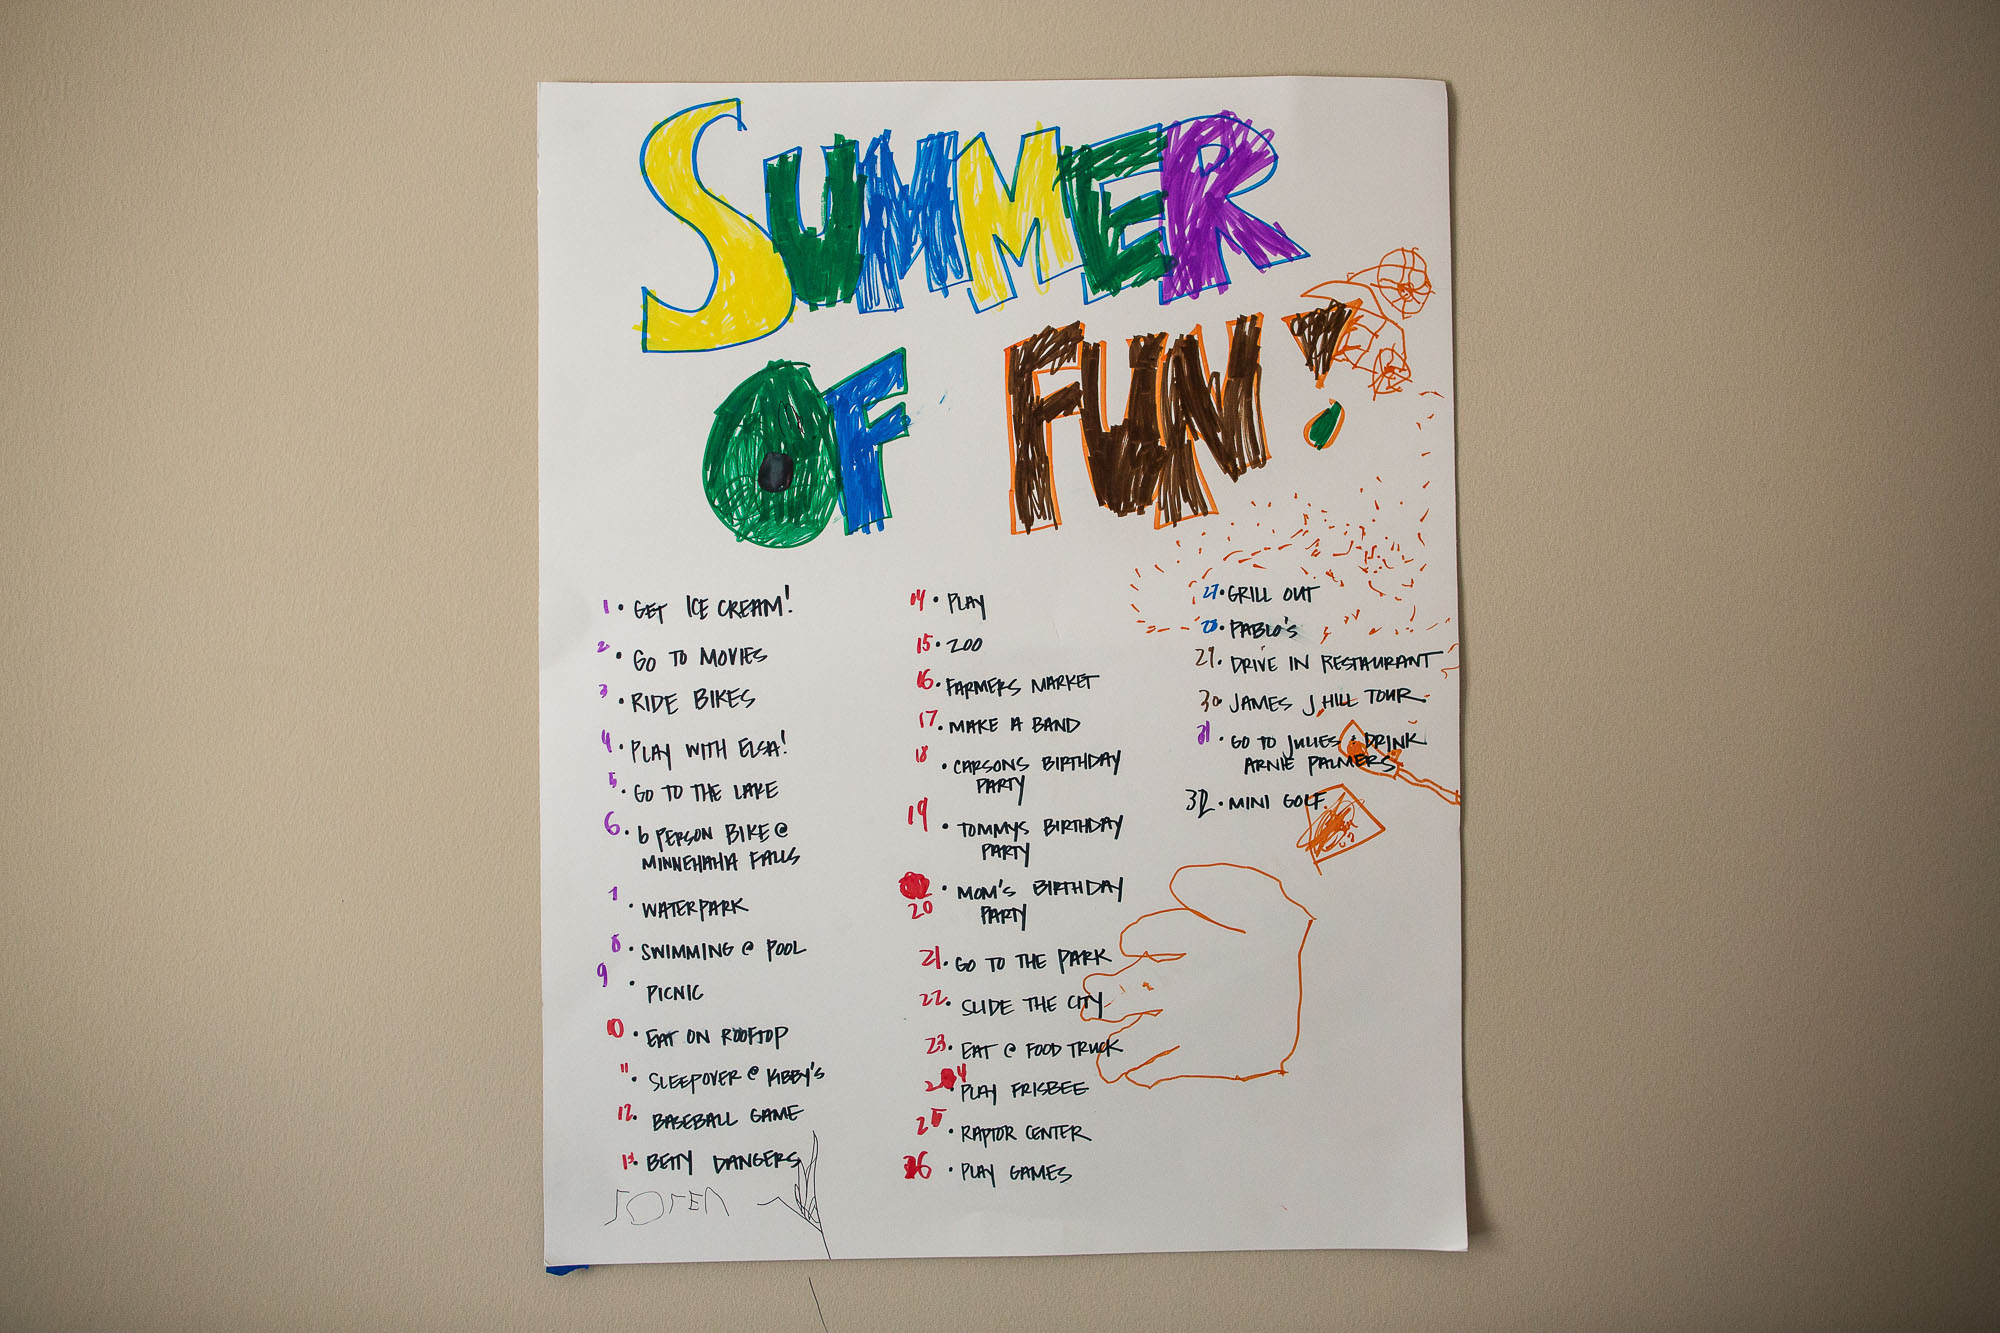 SUMMER
OF FUN!
1 • GET ICE CREAM!
2 • GO TO MOVIES
3 • RIDE BIKES
4 • PLAY WITH ELSA!
5 • GO TO THE LAKE
6 • 6 PERSON BIKE @
MINNEHAHA FALLS
7 • WATERPARK
8 • SWIMMING @ POOL
9 • PICNIC
10 • EAT ON ROOFTOP
11 • SLEEPOVER @ KIBBY'S
12 • BASEBALL GAME
13 • BETTY DANGERS
SOREN
14 • PLAY
15 • ZOO
16 • FARMERS MARKET
17 • MAKE A BAND
18 • CARSONS BIRTHDAY
PARTY
19 • TOMMYS BIRTHDAY
PARTY
20 • MOM'S BIRTHDAY
PARTY
21 • GO TO THE PARK
22 • SLIDE THE CITY
23 • EAT @ FOOD TRUCK
24 • PLAY FRISBEE
25 • RAPTOR CENTER
26 • PLAY GAMES
27 • GRILL OUT
28 • PABLO'S
29 • DRIVE IN RESTAURANT
30 • JAMES J. HILL TOUR
31 • GO TO JULIES + DRINK
ARNIE PALMERS
32 • MINI GOLF